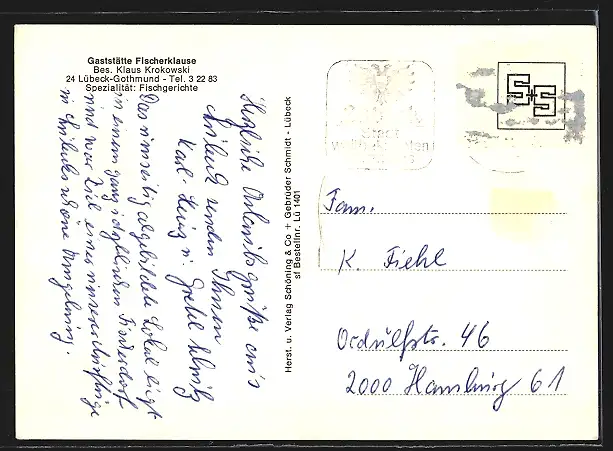 Gaststätte Fischerklause
Bes. Klaus Krokowski
24 Lübeck-Gothmund - Tel. 3 22 83
Spezialität: Fischgerichte
Herzliche Urlaubsgrüße aus
Lübeck senden Ihnen
Karl-Heinz u. Gretel
Das umseitig abgebildete Lokal liegt
in einem ganz idyllischen Fischerdorf
und war Ziel eines unserer Ausflüge
in Lübecks schöne Umgebung.
Herst. u. Verlag Schöning & Co + Gebrüder Schmidt - Lübeck
sf Bestellnr. Lü 1401
Fam.
K. Fiehl
Ordulfstr. 46
2000 Hamburg 61